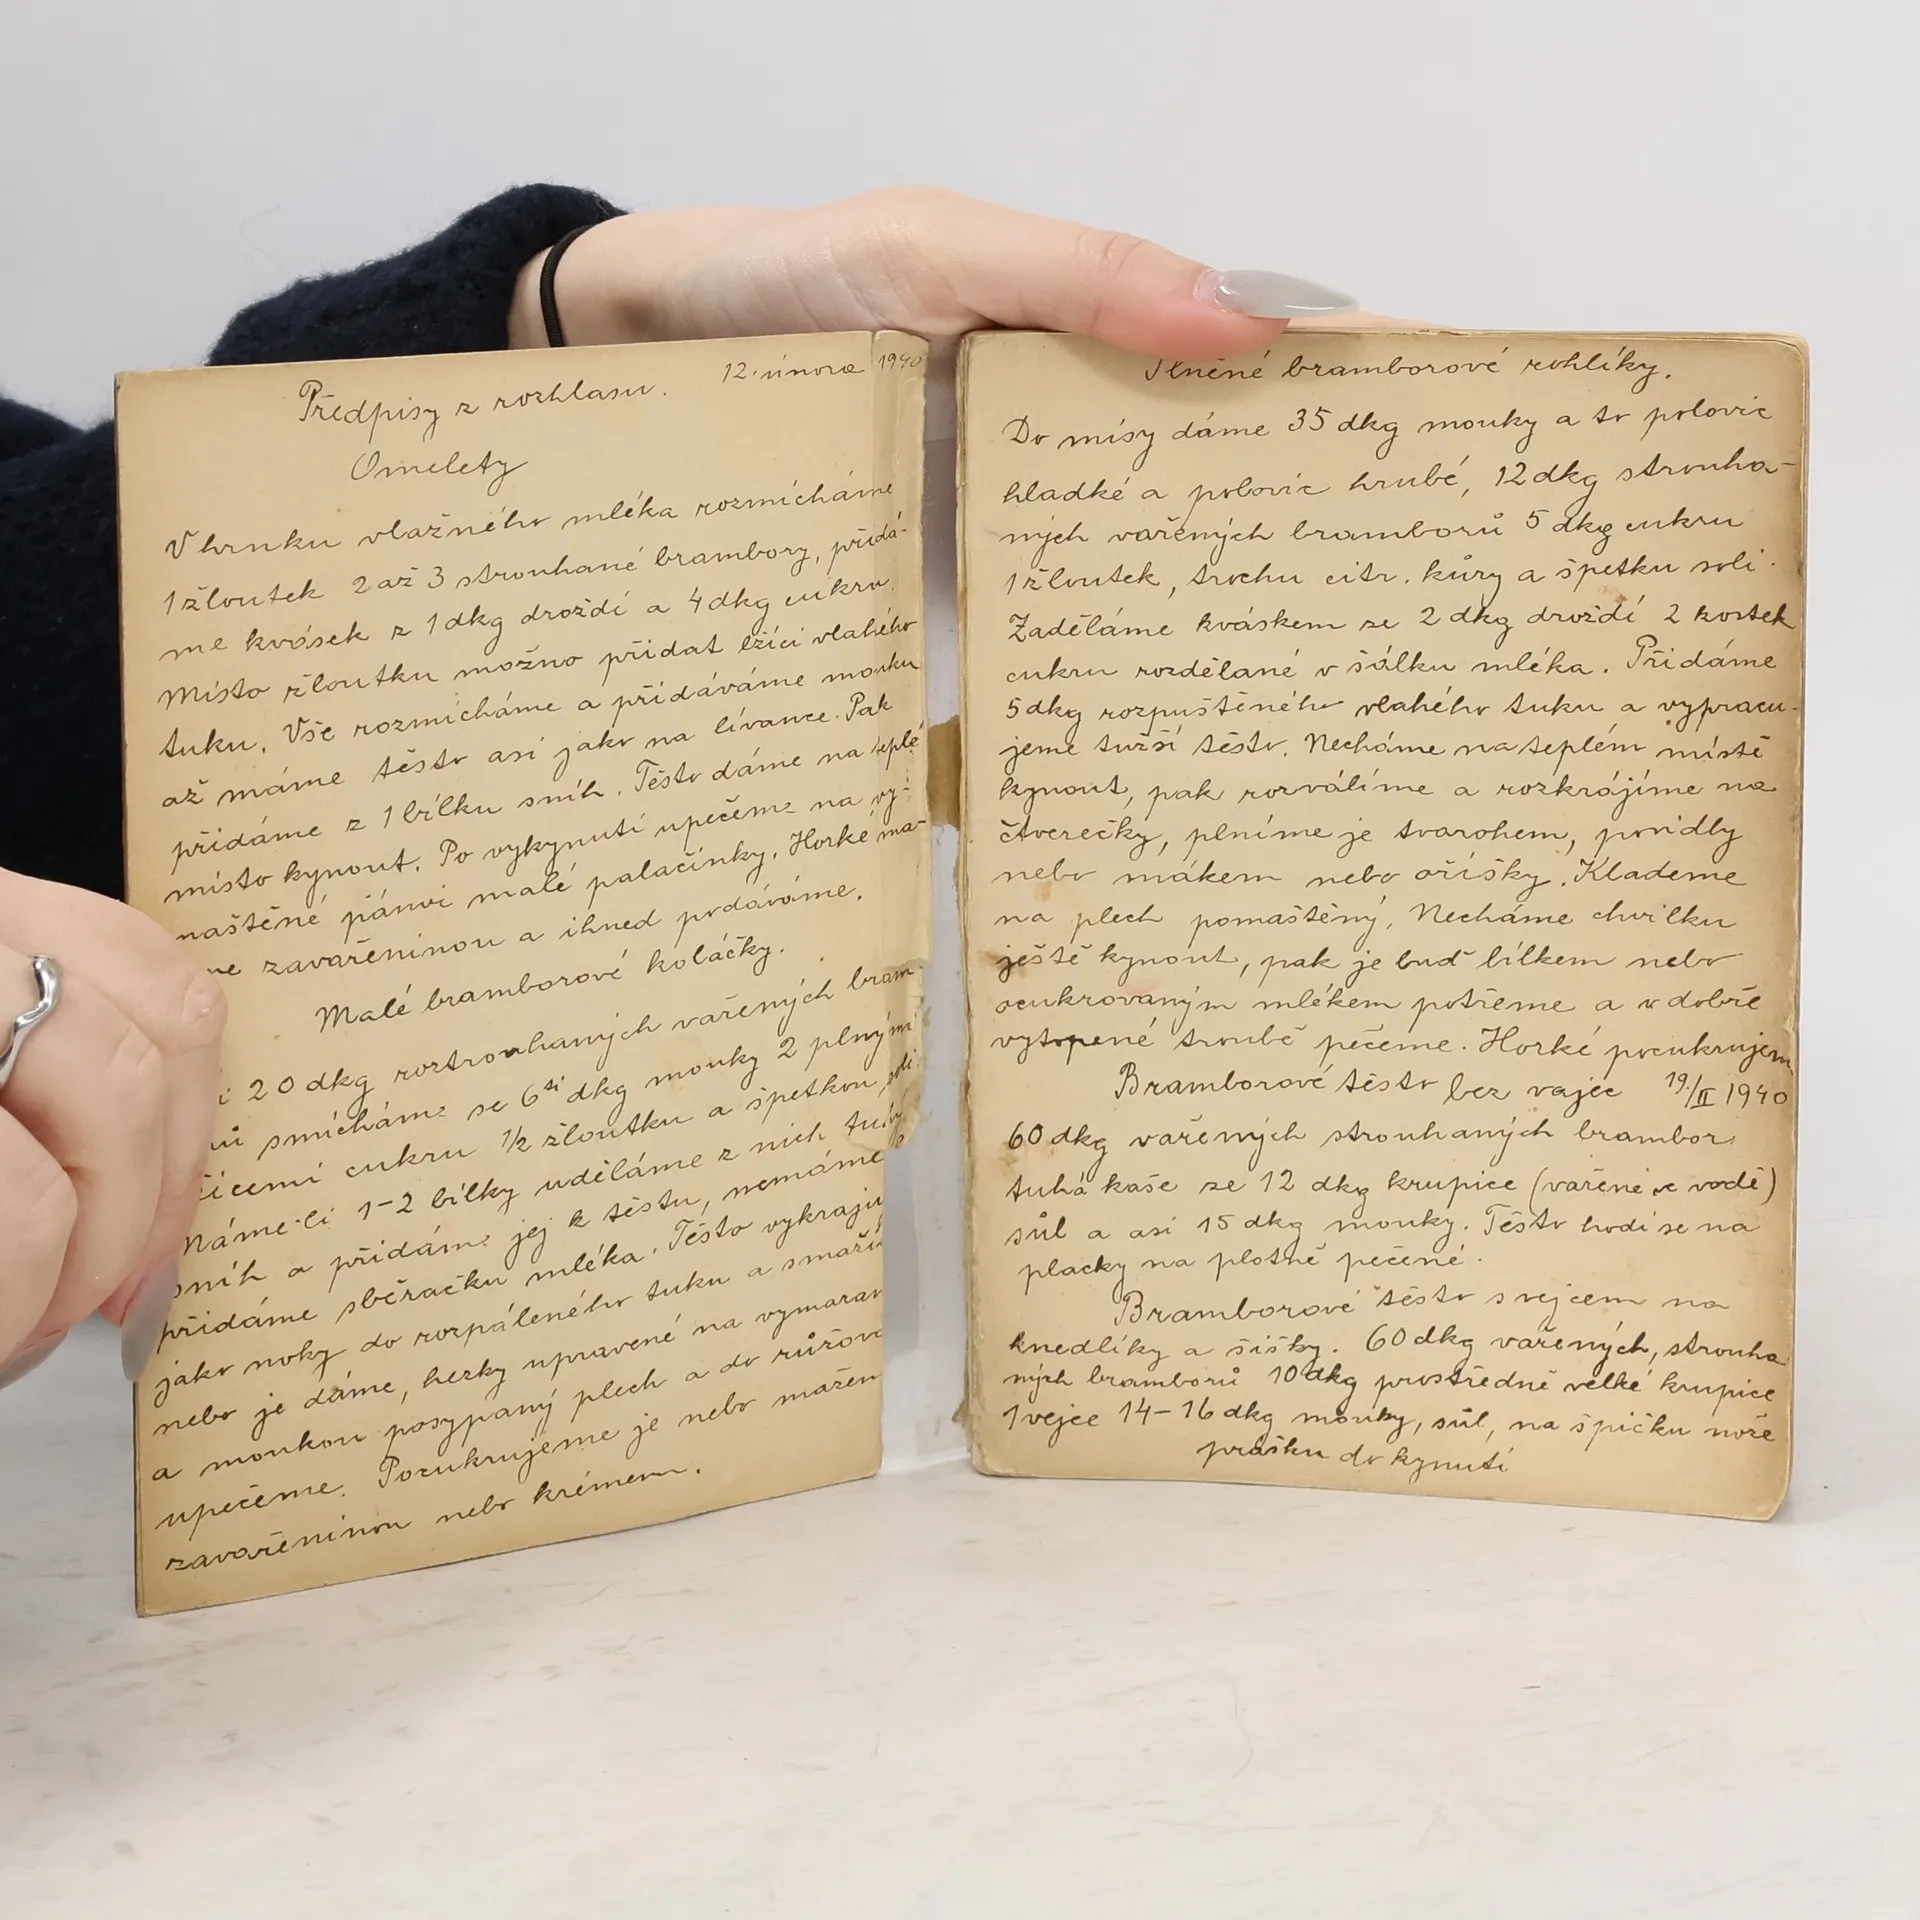 12. února 1940
Předpisy z rozhlasu.
Omelety
V hrnku vlažného mléka rozmícháme
1 žloutek 2 až 3 strouhané brambory, přidá-
me kvásek z 1 dkg droždí a 4 dkg cukru.
Místo žloutku možno přidat lžíci vlahého
tuku. Vše rozmícháme a přidáváme mouku
až máme těsto asi jako na lívance. Pak
přidáme z 1 bílku sníh. Těsto dáme na teplé
místo kynout. Po vykynutí upečeme na vy-
maštěné pánvi malé palačinky. Horké ma-
me zavařeninou a ihned podáváme.
Malé bramborové koláčky.
20 dkg roztrouhaných vařených bram-
smícháme se 6ti dkg mouky 2 plnými
cukru 1/2 žloutku a špetkou soli
Máme-li 1-2 bílky uděláme z nich tuhý
sníh a přidáme jej k těstu, nemáme
přidáme sběračku mléka. Těsto vykraju
jako noky do rozpáleného tuku a smaží
nebo je dáme, hezky upravené na vymazan
a moukou posypaný plech a do růžova
upečeme. Pocukrujeme je nebo mažem
zavařeninou nebo krémem.
Plněné bramborové rohlíky.
Do mísy dáme 35 dkg mouky a to polovic
hladké a polovic hrubé, 12 dkg strouha-
ných vařených bramborů 5 dkg cukru
1 žloutek, trochu citr. kůry a špetku soli.
Zaděláme kváskem ze 2 dkg droždí 2 kostek
cukru rozdělané v šálku mléka. Přidáme
5 dkg rozpuštěného vlahého tuku a vypracu-
jeme tužší těsto. Necháme na teplém místě
kynout, pak rozválíme a rozkrájíme na
čtverečky, plníme je tvarohem, povidly
nebo mákem nebo oříšky. Klademe
na plech pomaštěný. Necháme chvilku
ještě kynout, pak je buď bílkem nebo
ocukrovaným mlékem potřeme a v dobře
vytopené troubě pečeme. Horké pocukrujem.
Bramborové těsto bez vajec 19./II 1940
60 dkg vařených strouhaných brambor
tuhá kaše ze 12 dkg krupice (vařené ve vodě)
sůl a asi 15 dkg mouky. Těsto hodí se na
placky na plotně pečené.
Bramborové těsto s vejcem na
knedlíky a šišky. 60 dkg vařených, strouha
ných bramborů 10 dkg prostředně velké krupice
1 vejce 14-16 dkg mouky, sůl, na špičku nože
prášku do kynutí